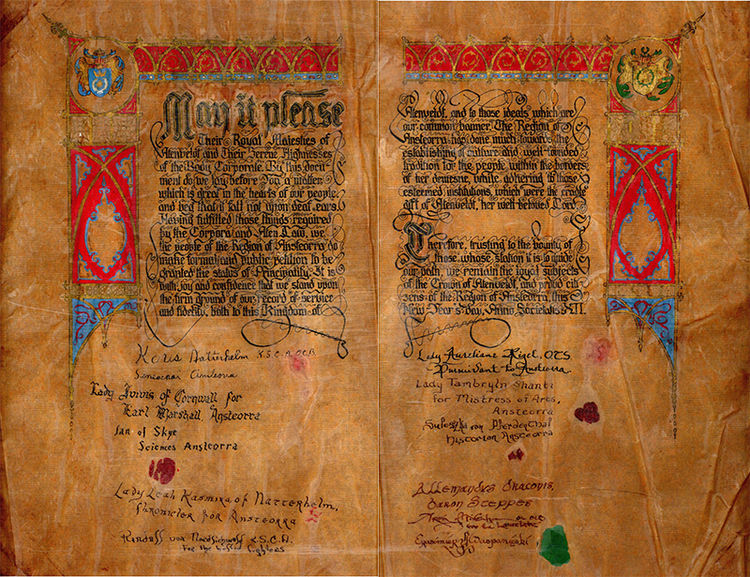 May it please
Their Royal Majesties of
Atenveldt and Their Serene Highnesses
of the Body Corporate. By this docu-
ment do we lay before You a matter
which is great in the hearts of our people,
and beg that it fall not upon deaf ears.
Having fulfilled those things required
by the Corpora and Aten Law, we
the people of the Region of Ansteorra do
make formal and public petition to be
granted the status of Principality. It is
with joy and confidence that we stand upon
the firm ground of our record of service
and fidelity, both to this Kingdom of
Keris Natterhelm K.S.C.A. OCB
Seneschal Ansteorra
Lady Jynnis of Cornwall for
Earl Marshall, Ansteorra
Ian of Skye
Sciences Ansteorra
Lady Leah Kasmira of Natterhelm,
Chronicler for Ansteorra
von K.S.C.A.
For the
Atenveldt, and to those ideals which are
our common banner. The Region of
Ansteorra has done much towards the
establishing of culture and well-founded
tradition for the people within the borders
of her demesne, while adhering to those
esteemed institutions, which were the cradle
gift of Atenveldt, her well-beloved Lord.
Therefore, trusting to the bounty of
those whose station it is to guide
our path, we remain the loyal subjects
of the Crown of Atenveldt, and proud citi-
zens of the Region of Ansteorra, this
New Year's Day, Anno Societatis XII.
Lady Aureliane Rigel, OTS.
Pursuivant to Ansteorra
Lady Tambryln Shanti
for Mistress of Arts,
Ansteorra
von Pferdenthal
Historian Ansteorra
Allemandus Draconis,
Baron Steppes